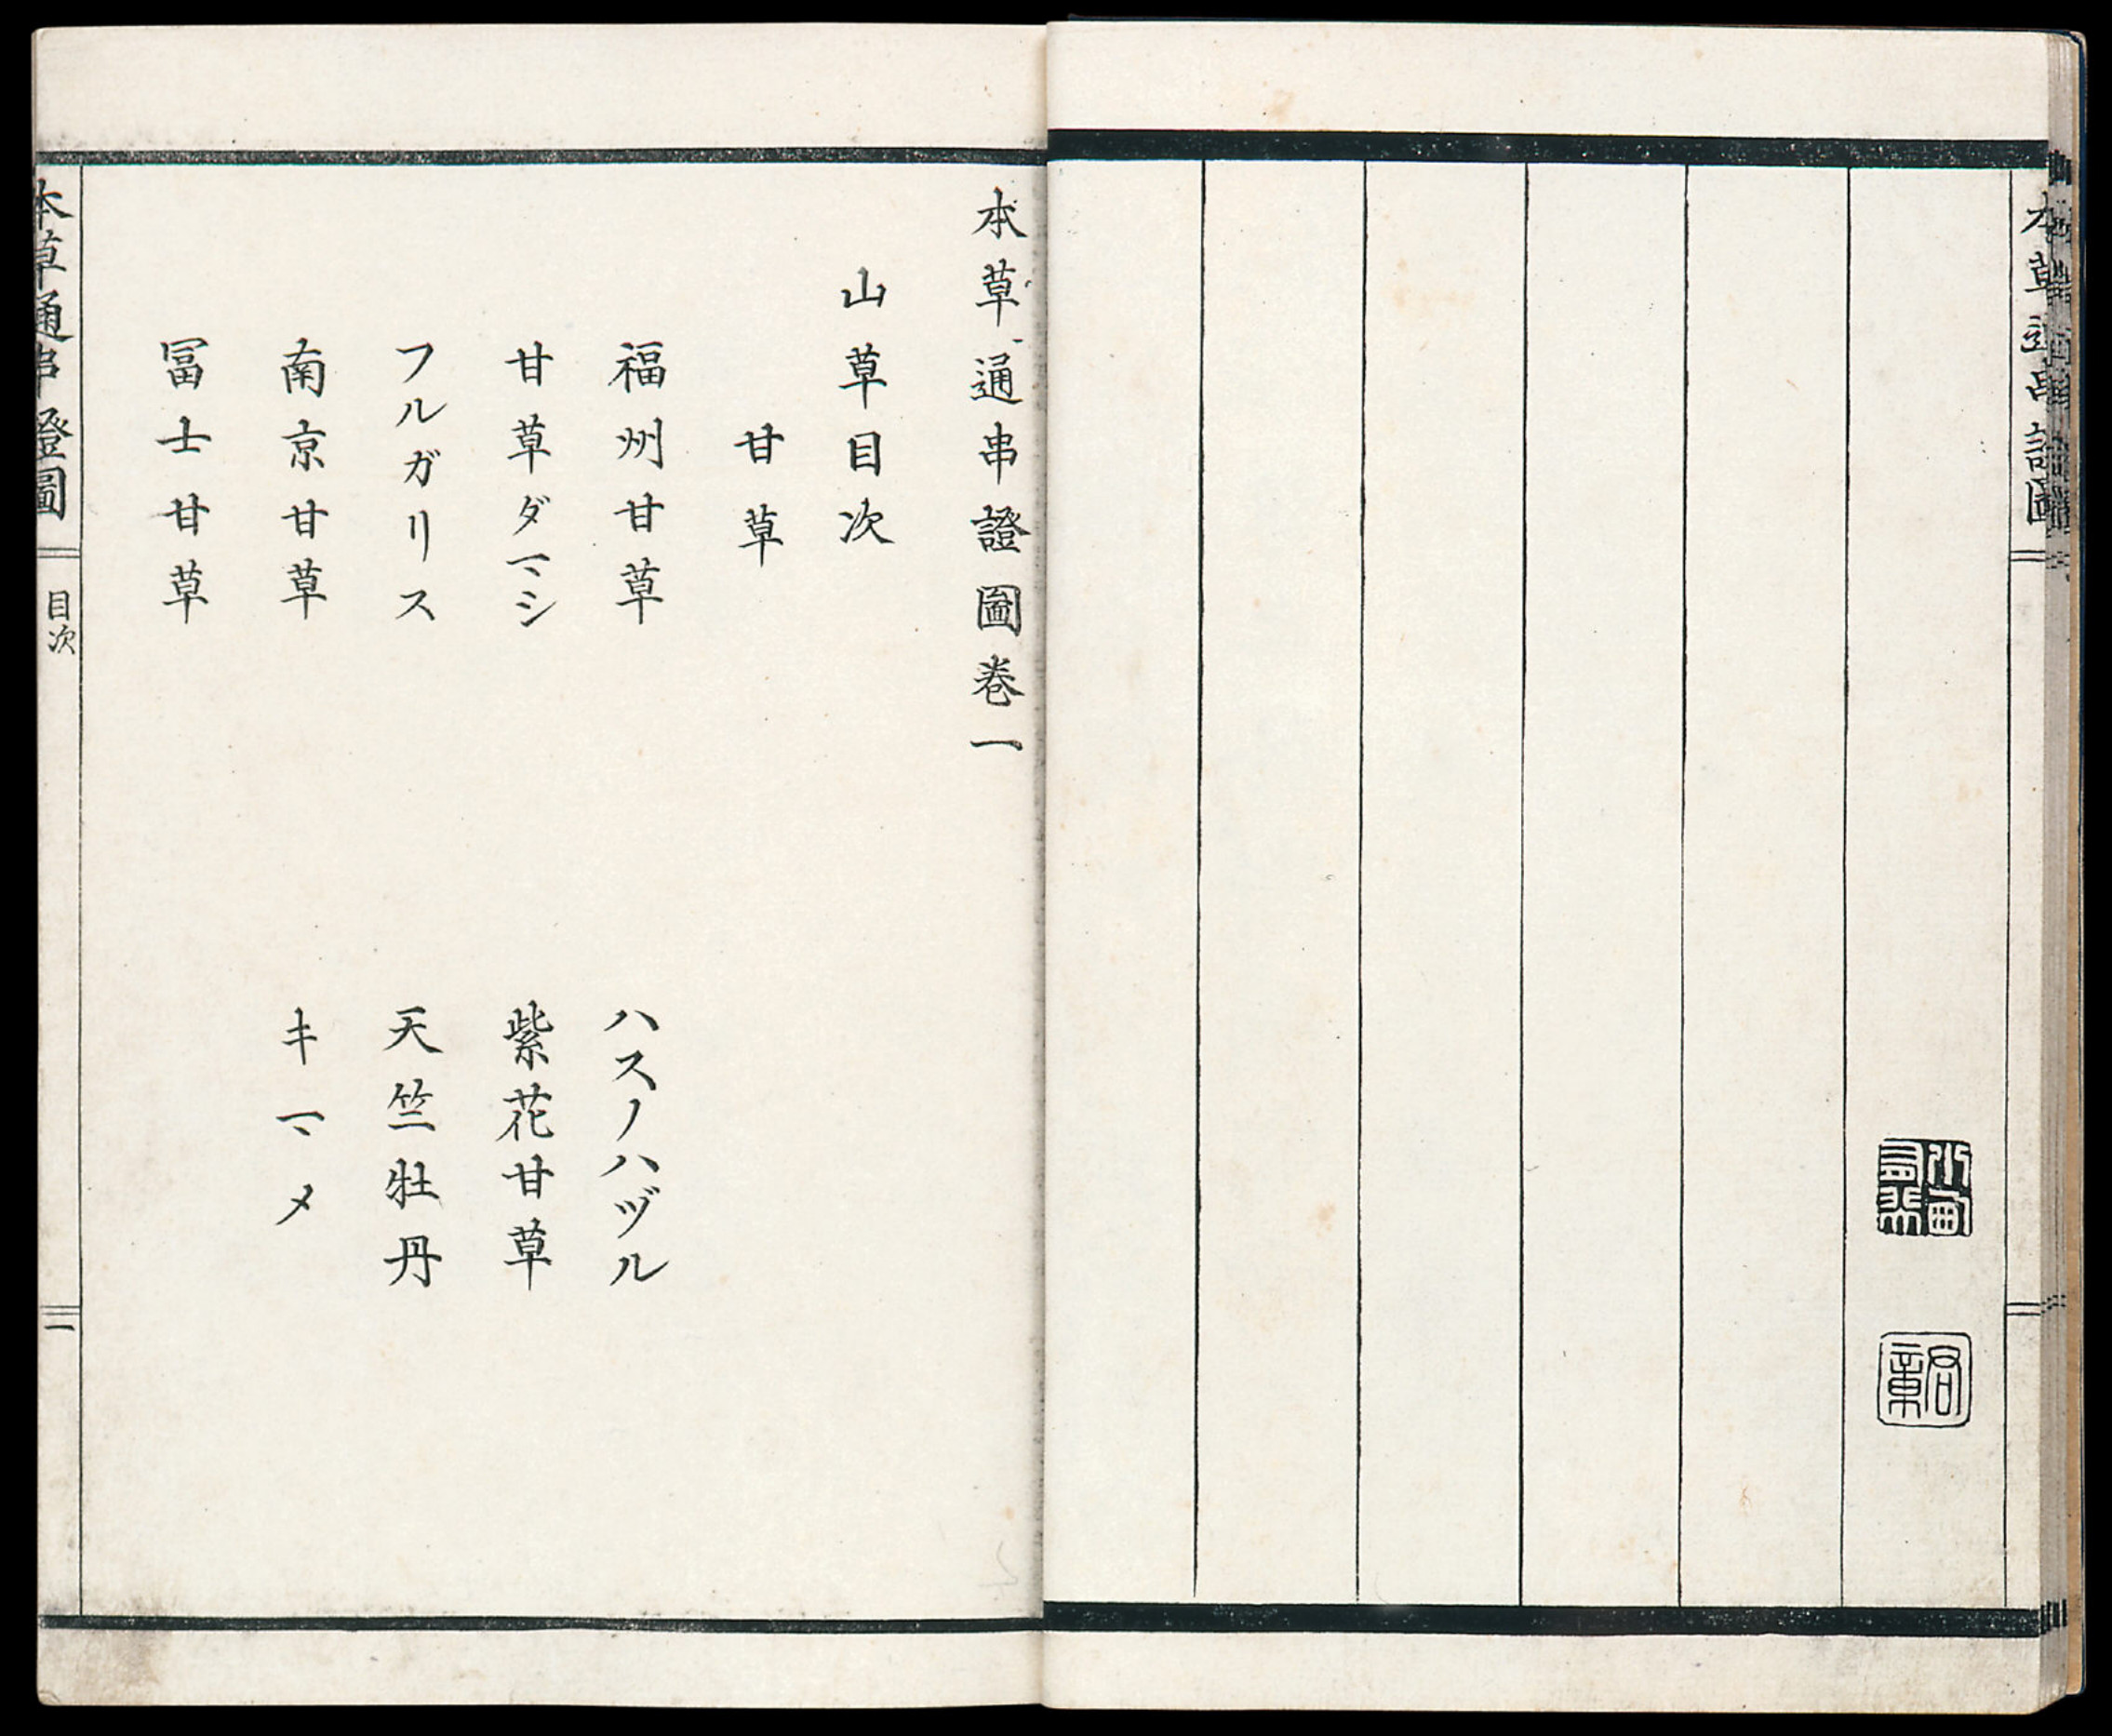 本草通串證圖
本草通串證圖巻一
山草目次
甘草
福州甘草
ハスノハヅル
甘草ダマシ
紫花甘草
フルガリス
天竺牡丹
南京甘草
キマメ
冨士甘草
本草通串證圖
目次
一